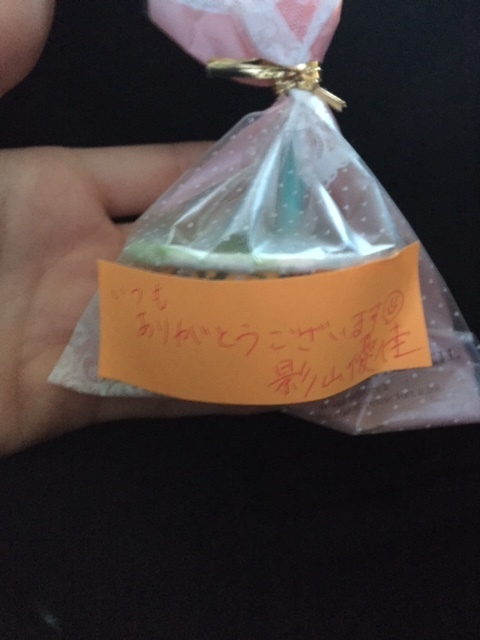 いつも
ありがとうございます
影山優佳